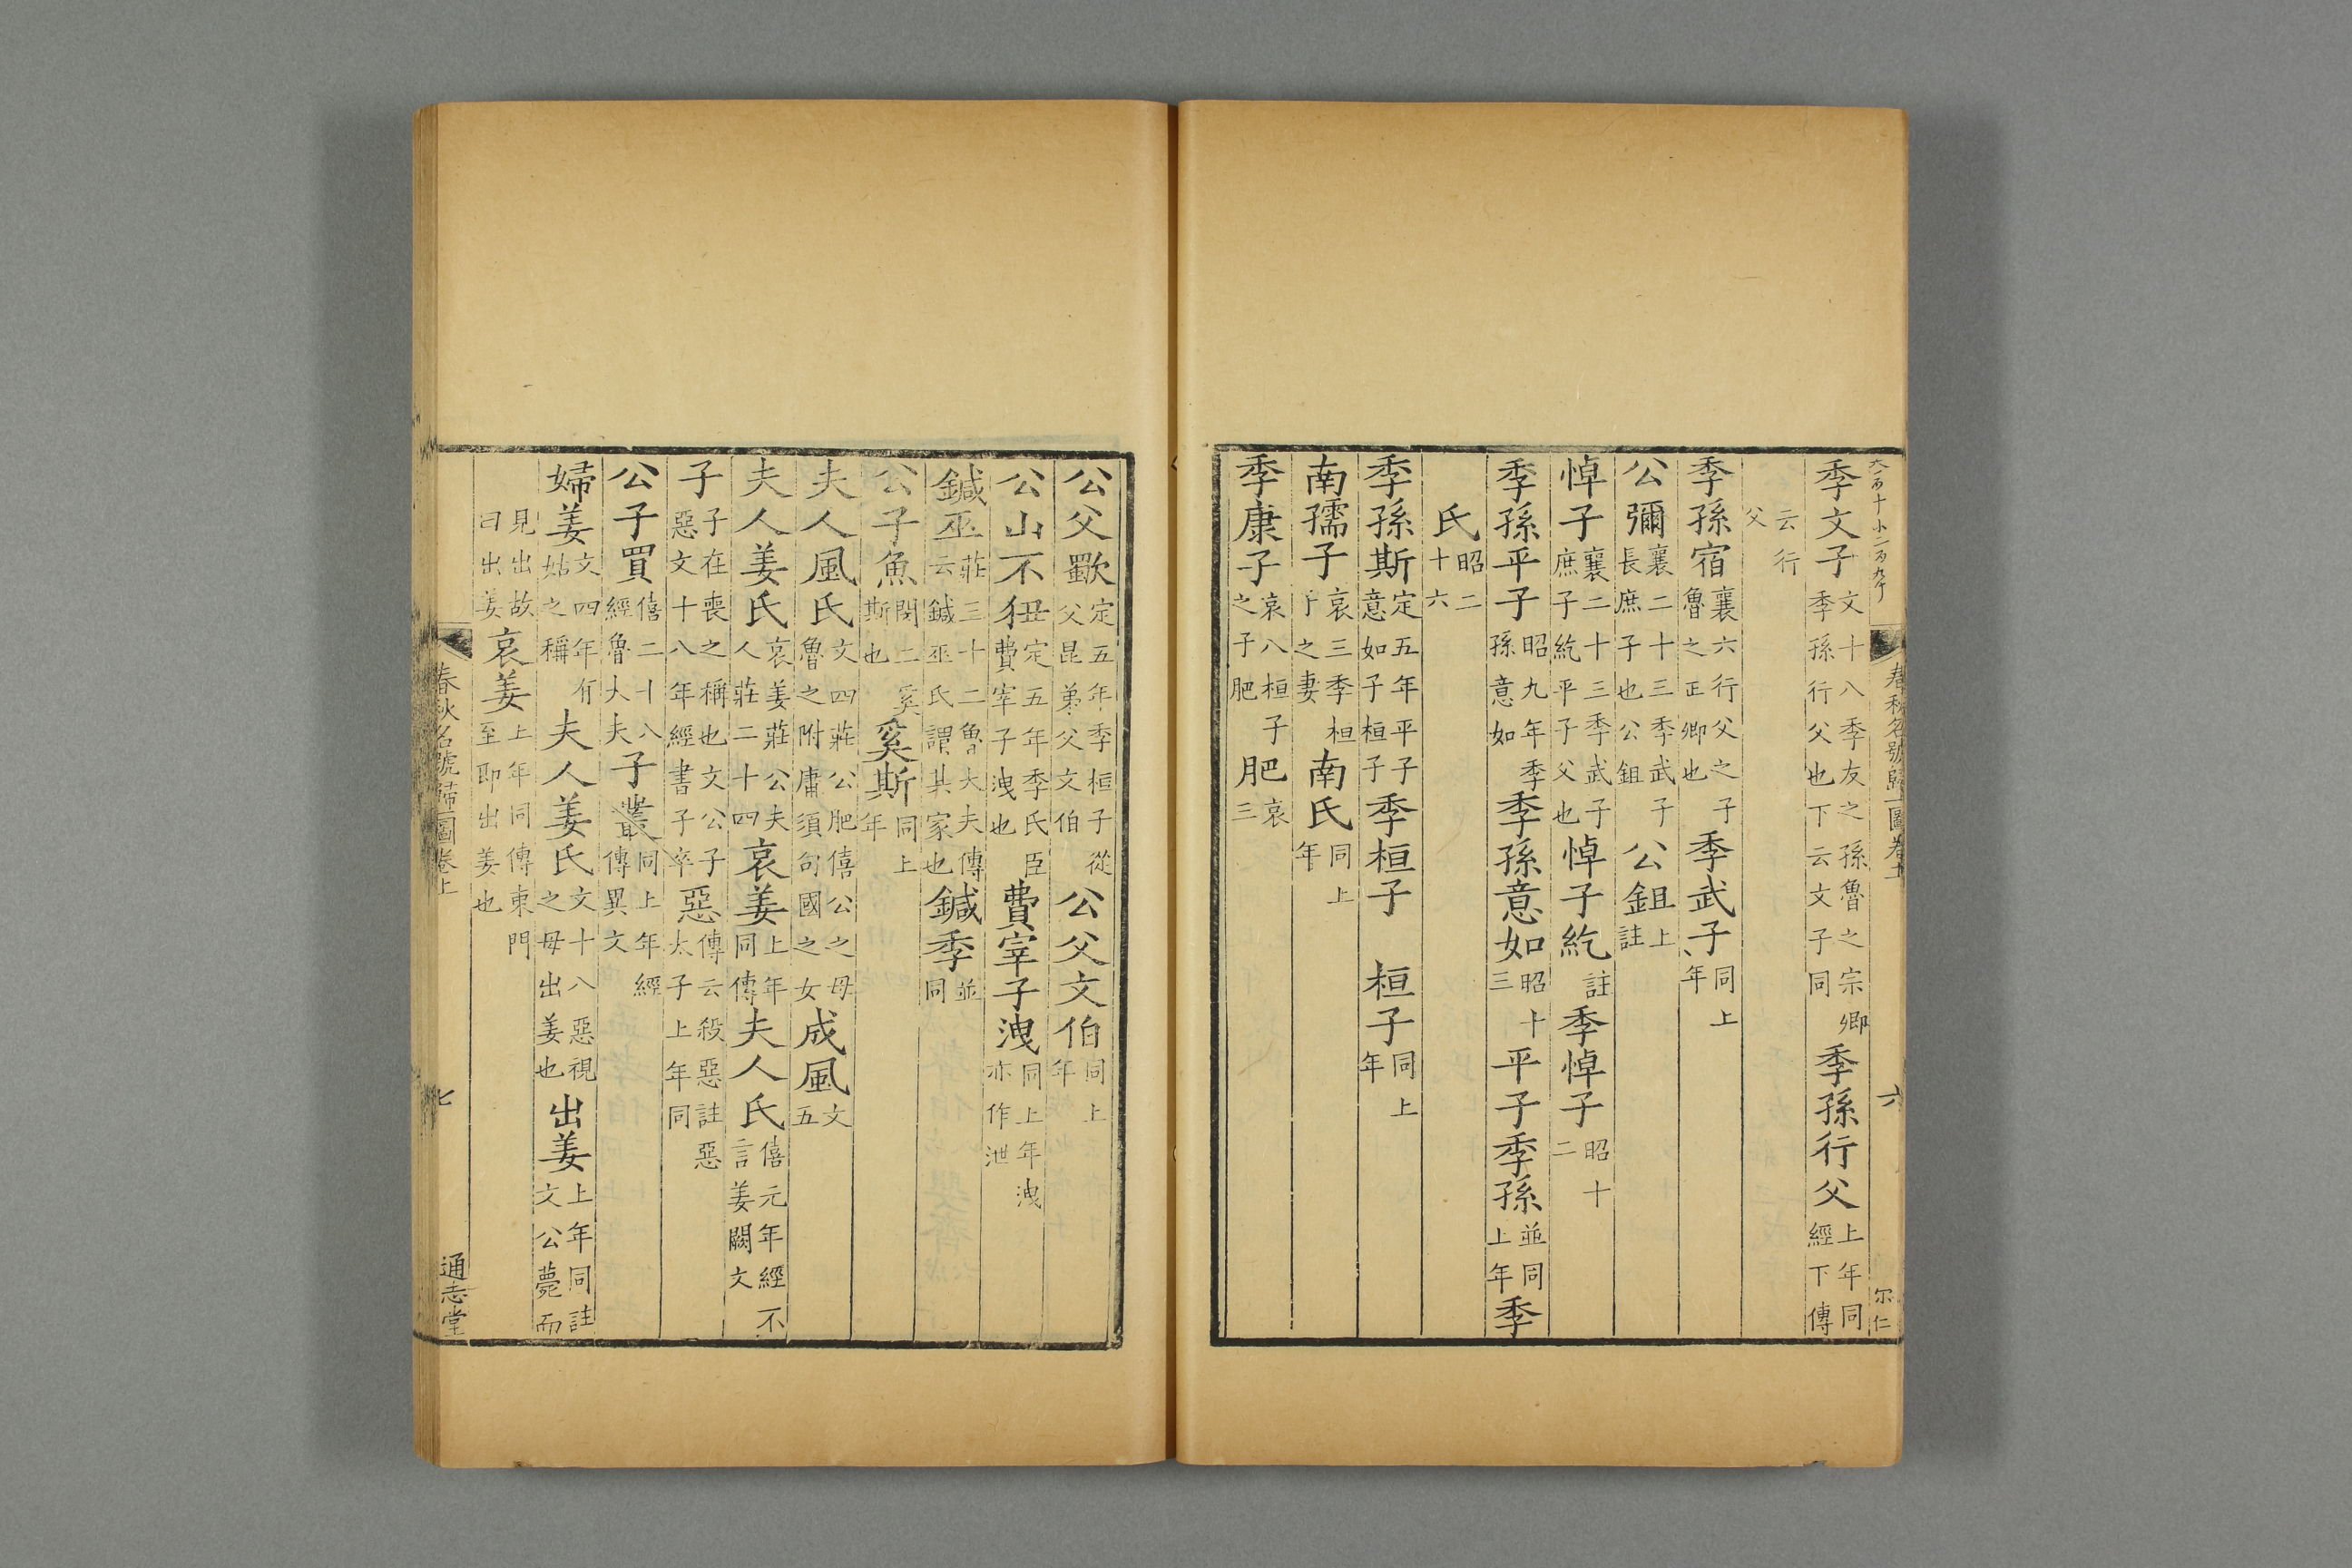 春秋名號歸一圖卷上 六
季文子文十八季友之孫魯之宗卿季孫行父也下云文子同季孫行父上年同經下傳
云行父
季孫宿襄六行父之子魯之正卿也季武子同上年
公彌襄二十三季武子長庶子也公鉏公鉏上註
悼子襄二十三季武子庶子紇平子父也悼子紇註季悼子昭十二
季孫平子昭九年季孫意如季孫意如昭十三平子季孫並同上年季
氏昭二十六
季孫斯定五年平子意如子桓子季桓子 桓子同上年
南孺子哀三季桓子之妻南氏同上年
季康子哀八桓子之子肥肥哀三
公父歜定五年季桓子從父昆弟公父文伯公父文伯同上年
公山不狃定五年季氏臣費宰子洩也費宰子洩同上年洩亦作泄
鍼巫莊三十二魯大夫傳云鍼巫氏謂其家也鍼季並同
公子魚閔二奚斯也奚斯同上年
夫人風氏文四莊公肥僖公之母魯之附庸須句國之女成風文五
夫人姜氏哀姜莊公夫人莊二十四哀姜上年同傳夫人氏僖元年經不言姜闕文
子子在喪之稱也文公子惡文十八年經書子卒惡傳云殺惡註惡太子上年同
公子買僖二十八經魯大夫子叢同上年經傳異文
婦姜文四年有姑之稱夫人姜氏文十八惡視之母出姜也出姜上年同註文公薨而
見出故曰出姜哀姜上年同傳東門至即出姜也
春秋名號歸一圖卷上 七 通志堂